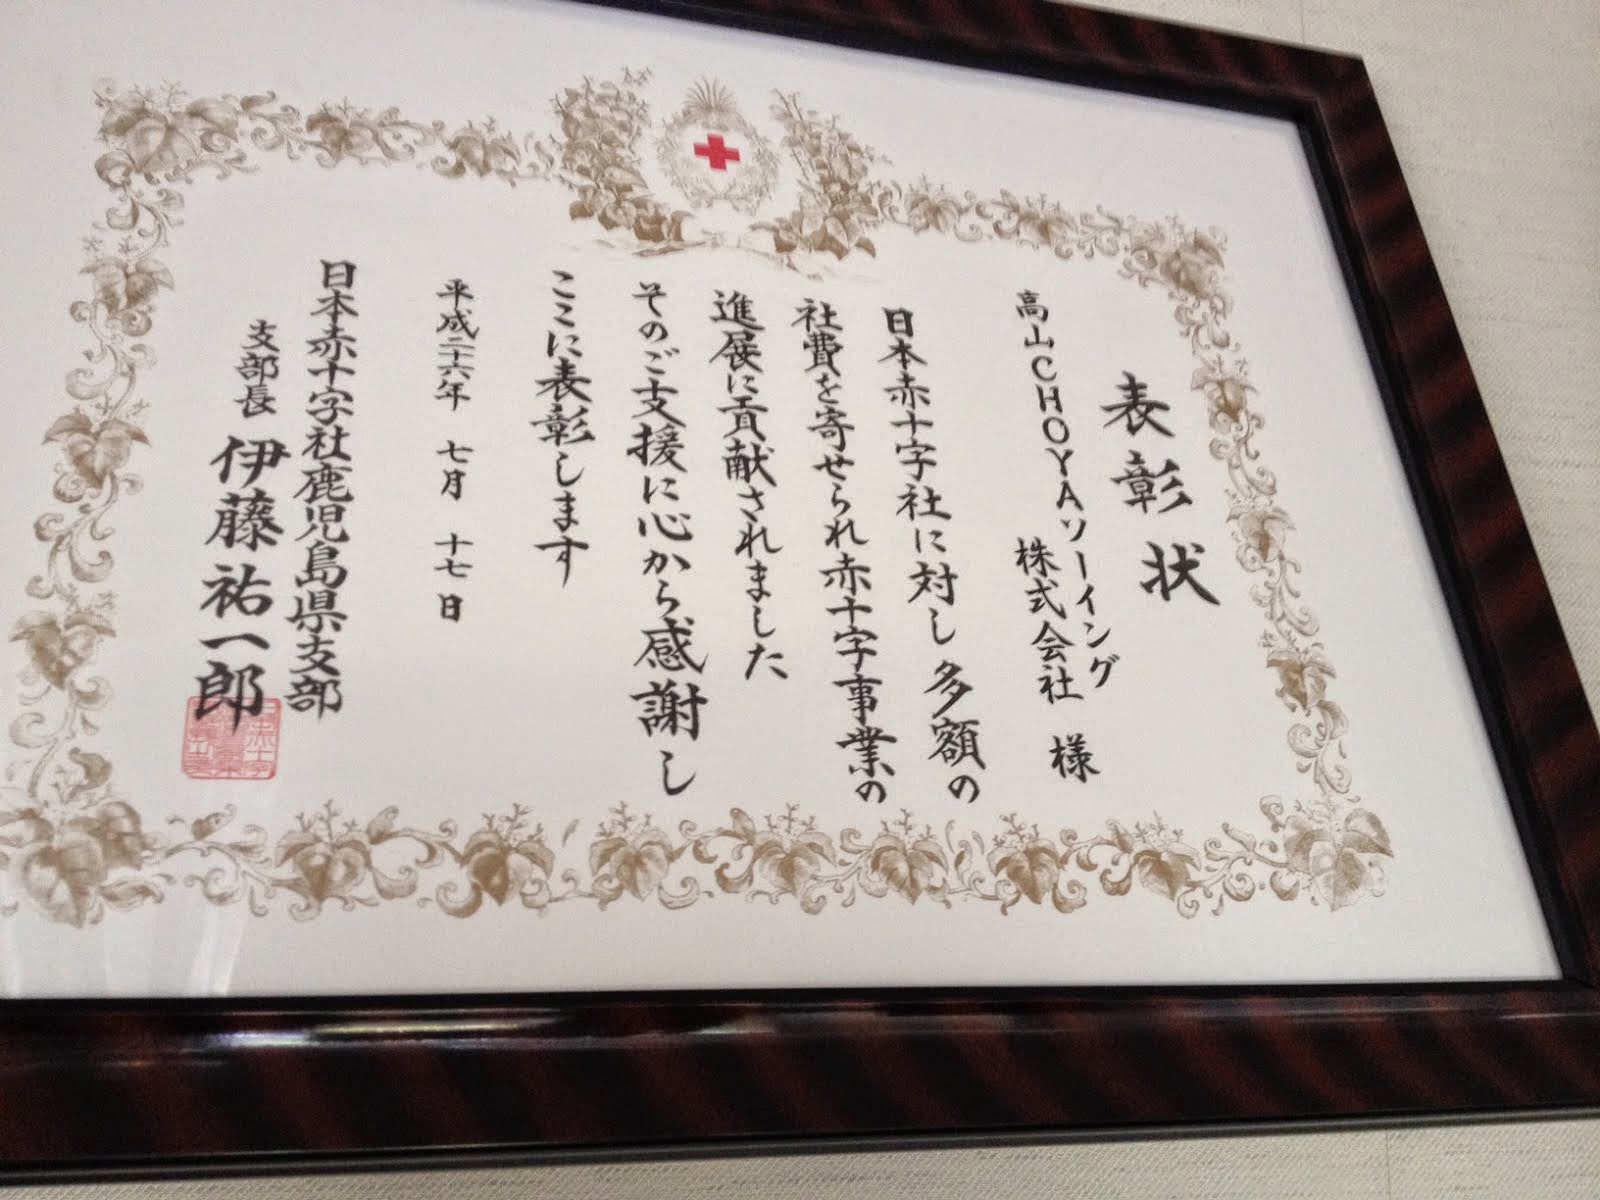 表彰状
高山CHOYAソーイング
株式会社 様
日本赤十字社に対し多額の
社費を寄せられ赤十字事業の
進展に貢献されました
そのご支援に心から感謝し
ここに表彰します
平成二十六年 七月 十七日
日本赤十字社鹿児島県支部
支部長 伊藤祐一郎